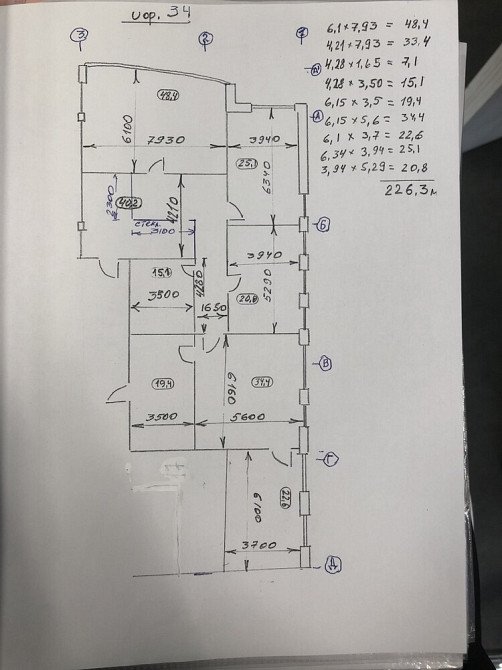 иор. 34
3
2
1
6,1 x 7,93 = 48,4
4,21 x 7,93 = 33,4
4,28 x 1,65 = 7,1
4,28 x 3,50 = 15,1
6,15 x 3,5 = 19,4
6,15 x 5,6 = 34,4
6,1 x 3,7 = 22,6
6,34 x 3,94 = 25,1
3,94 x 5,29 = 20,8
226,3 м
А
48,4
6100
7930
3940
25,1
6340
2300
40,2
4210
стекл.
3100
Б
3940
15,1
4280
3500
1650
20,8
5290
В
19,4
6160
34,4
3500
5600
Г
6100
22,6
3700
Д